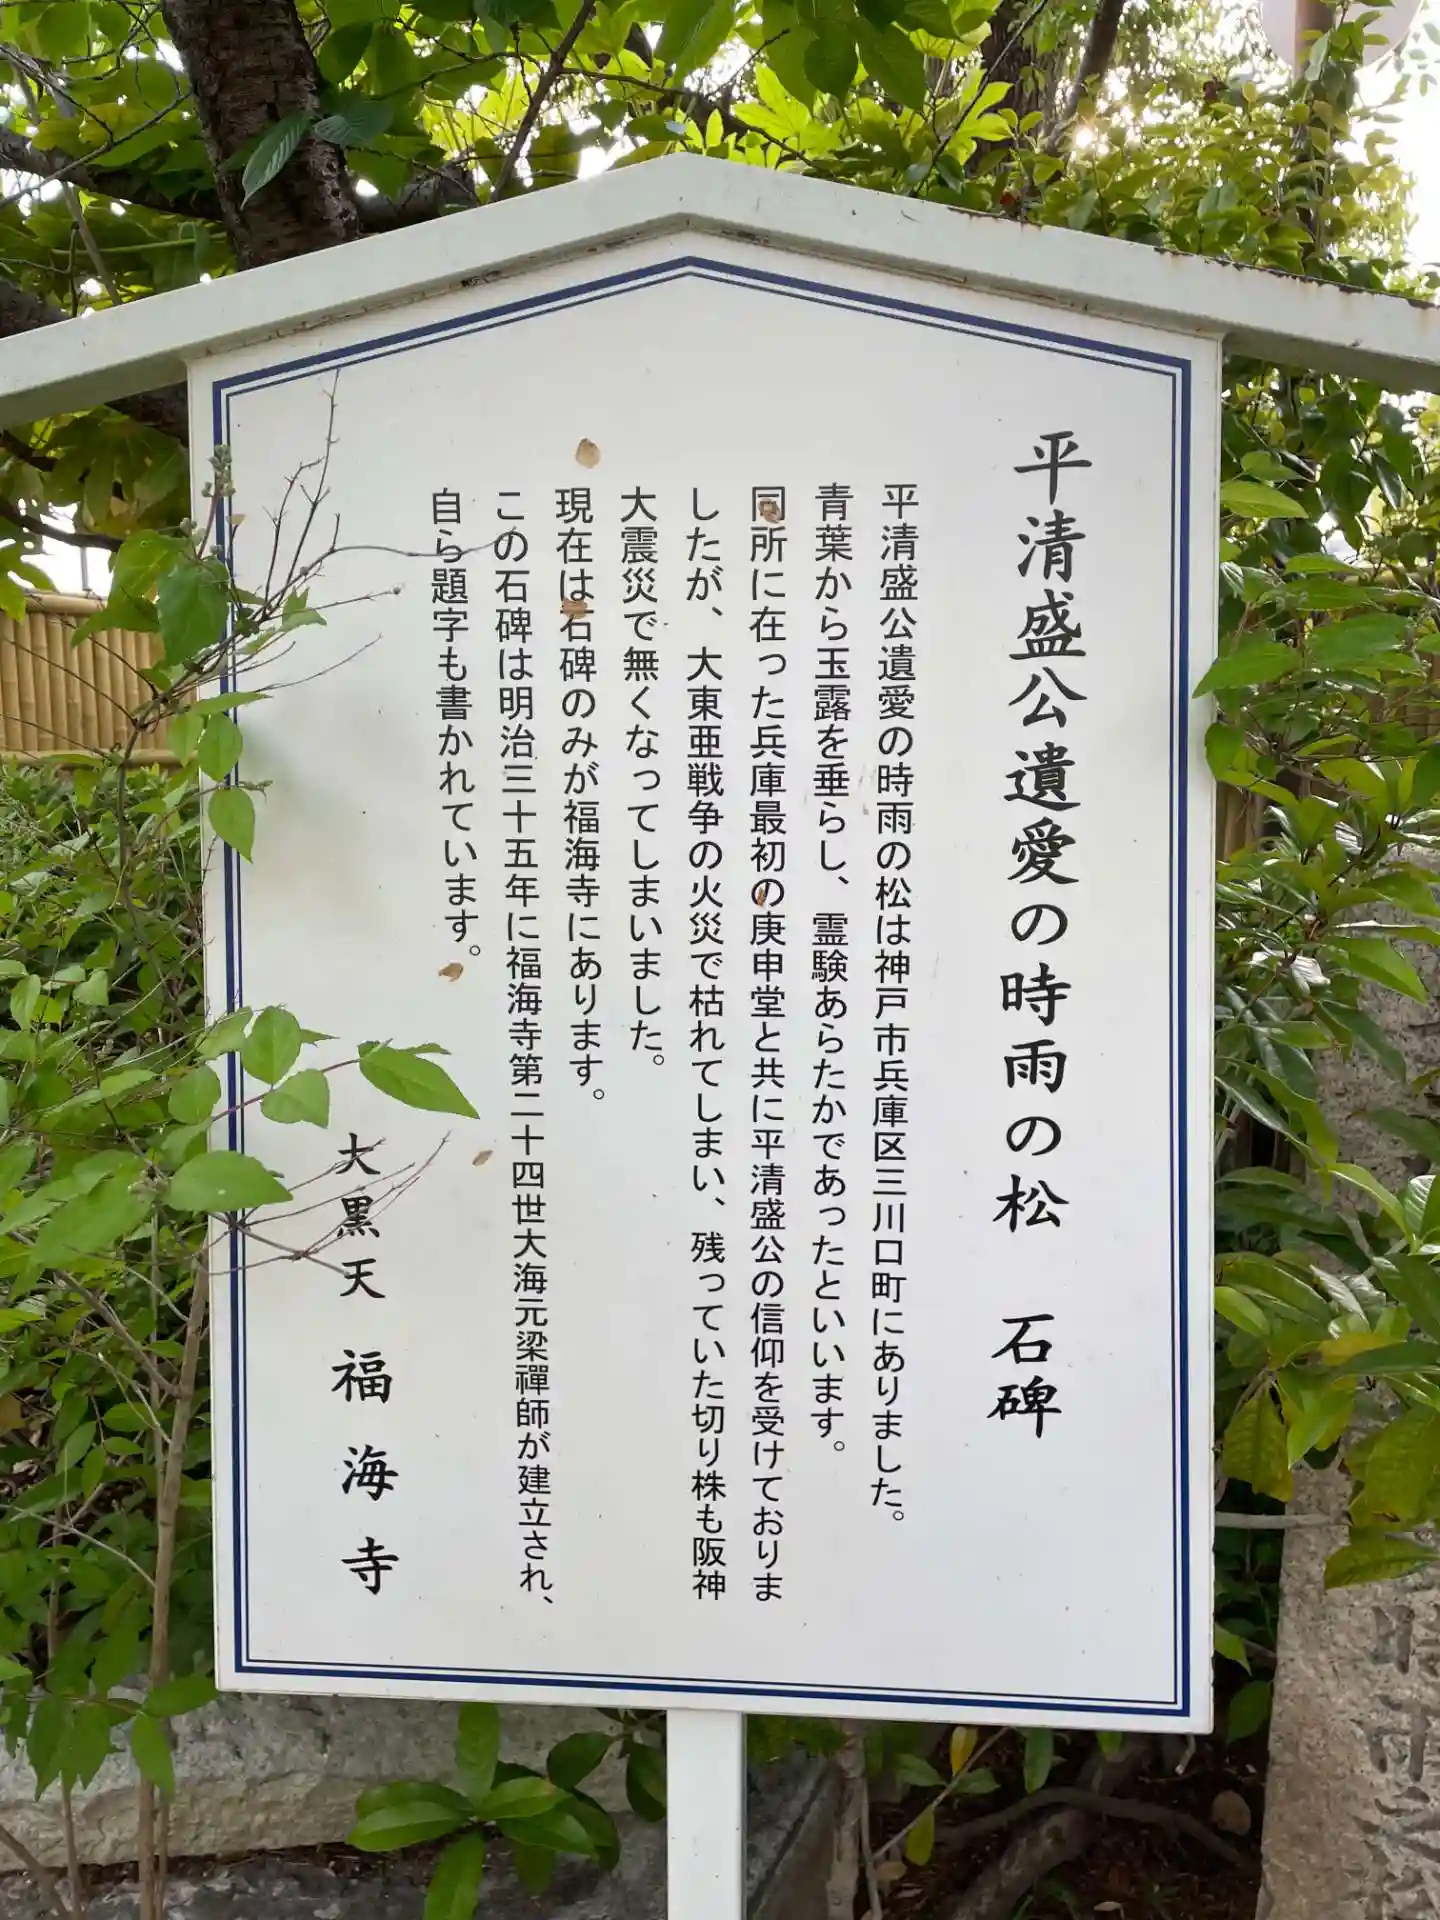 平清盛公遺愛の時雨の松 石碑
平清盛公遺愛の時雨の松は神戸市兵庫区三川口町にありました。
青葉から玉露を垂らし、霊験あらたかであったといいます。
同所に在った兵庫最初の庚申堂と共に平清盛公の信仰を受けておりま
したが、大東亜戦争の火災で枯れてしまい、残っていた切り株も阪神
大震災で無くなってしまいました。
現在は石碑のみが福海寺にあります。
この石碑は明治三十五年に福海寺第二十四世大海元梁禪師が建立され、
自ら題字も書かれています。
大黒天 福海寺